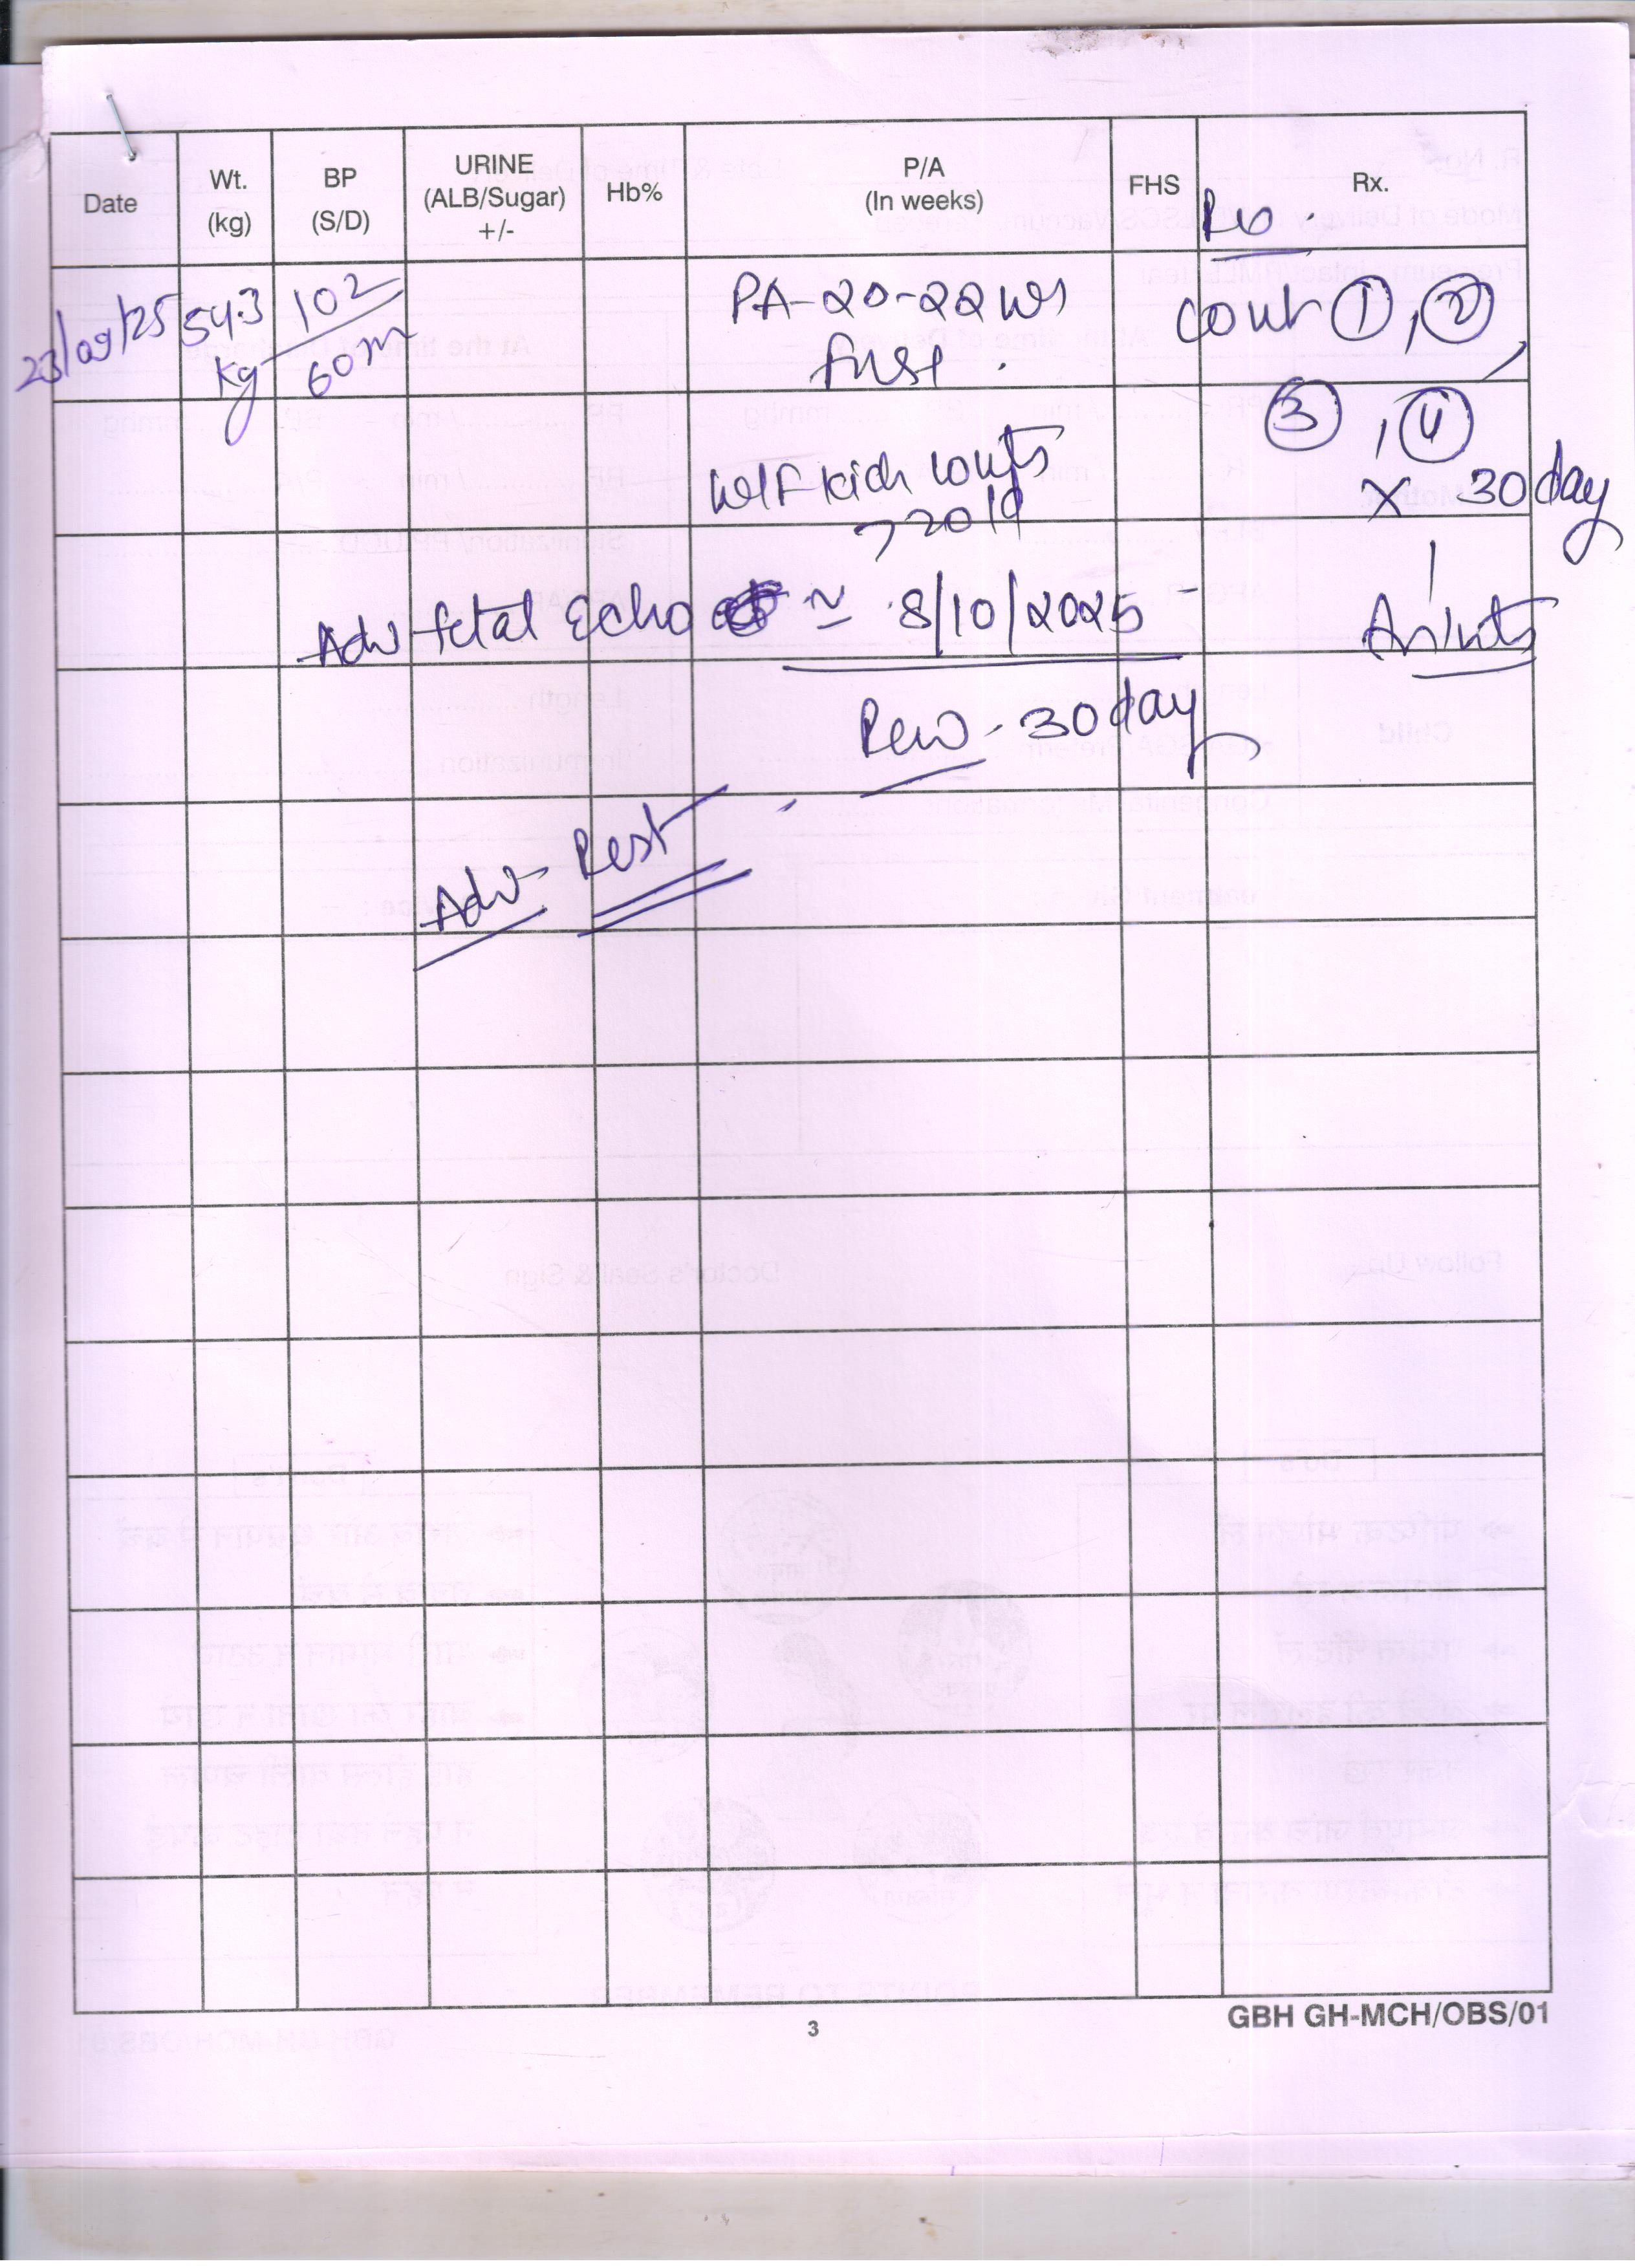 Date Wt. (kg) BP (S/D) URINE (ALB/Sugar) +/- Hb% P/A (In weeks) FHS Rx.
23/09/25 54.3 kg 102/60 PA-20-22 ws Cont ①, ②,
③, ④
x 30 day
W/F kick counts
Adv fetal Echo ≃ 8/10/2025
Rew - 30 day
Adv - Rest
3
GBH GH-MCH/OBS/01